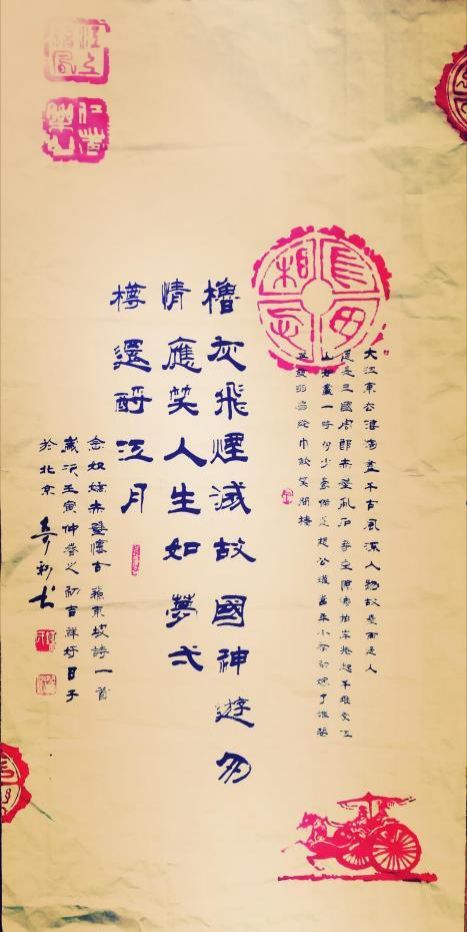 江上清風
仁者樂山
長毋相忘
大江東去浪淘盡千古風流人物故壘西邊人
道是三國周郎赤壁亂石穿空拍岸捲起千堆雪江
山如畫一時多少豪傑遥想公瑾當年小喬初嫁了雄姿
英發羽扇綸巾談笑間檣
櫓灰飛煙滅故國神遊多
情應笑人生如夢弌
樽還酹江月
念奴嬌赤壁懷古 蘇東坡詩一首
歲次壬寅仲春之初吉祥好日子
於北京 书